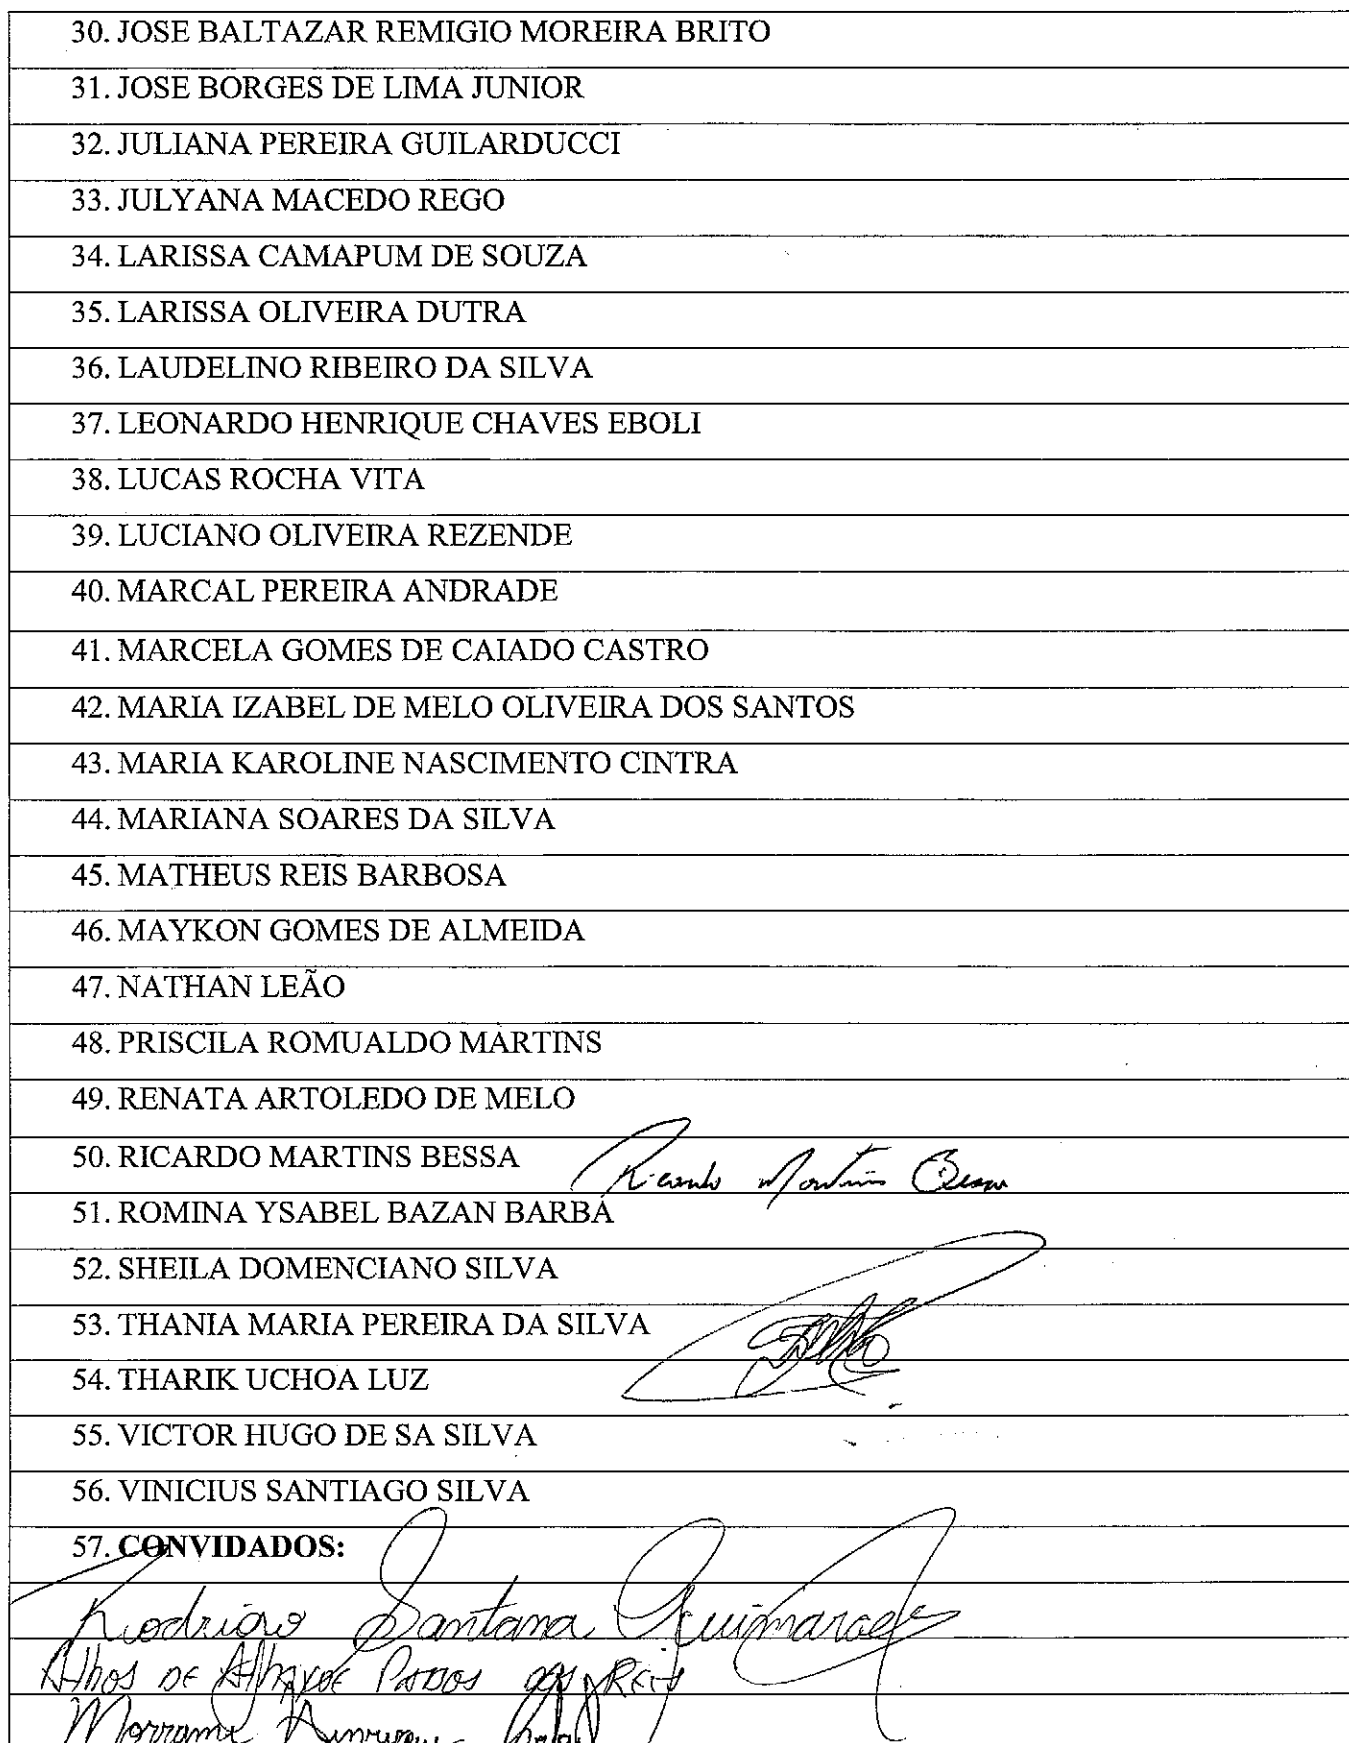 30. JOSE BALTAZAR REMIGIO MOREIRA BRITO
31. JOSE BORGES DE LIMA JUNIOR
32. JULIANA PEREIRA GUILARDUCCI
33. JULYANA MACEDO REGO
34. LARISSA CAMAPUM DE SOUZA
35. LARISSA OLIVEIRA DUTRA
36. LAUDELINO RIBEIRO DA SILVA
37. LEONARDO HENRIQUE CHAVES EBOLI
38. LUCAS ROCHA VITA
39. LUCIANO OLIVEIRA REZENDE
40. MARCAL PEREIRA ANDRADE
41. MARCELA GOMES DE CAIADO CASTRO
42. MARIA IZABEL DE MELO OLIVEIRA DOS SANTOS
43. MARIA KAROLINE NASCIMENTO CINTRA
44. MARIANA SOARES DA SILVA
45. MATHEUS REIS BARBOSA
46. MAYKON GOMES DE ALMEIDA
47. NATHAN LEÃO
48. PRISCILA ROMUALDO MARTINS
49. RENATA ARTOLEDO DE MELO
50. RICARDO MARTINS BESSA Ricardo Martins Bessa
51. ROMINA YSABEL BAZAN BARBA
52. SHEILA DOMENCIANO SILVA
53. THANIA MARIA PEREIRA DA SILVA
54. THARIK UCHOA LUZ
55. VICTOR HUGO DE SA SILVA
56. VINICIUS SANTIAGO SILVA
57. CONVIDADOS:
Rodrigo Santana Guimaraes
DE DOS REIS